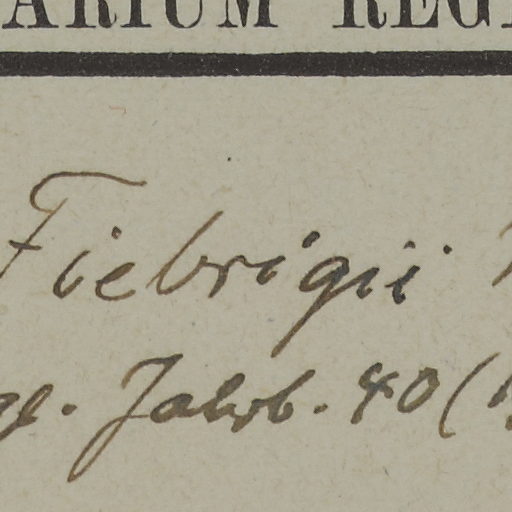 ARIUM REGI
Fiebrigii
gl. Jahrb. 40 (